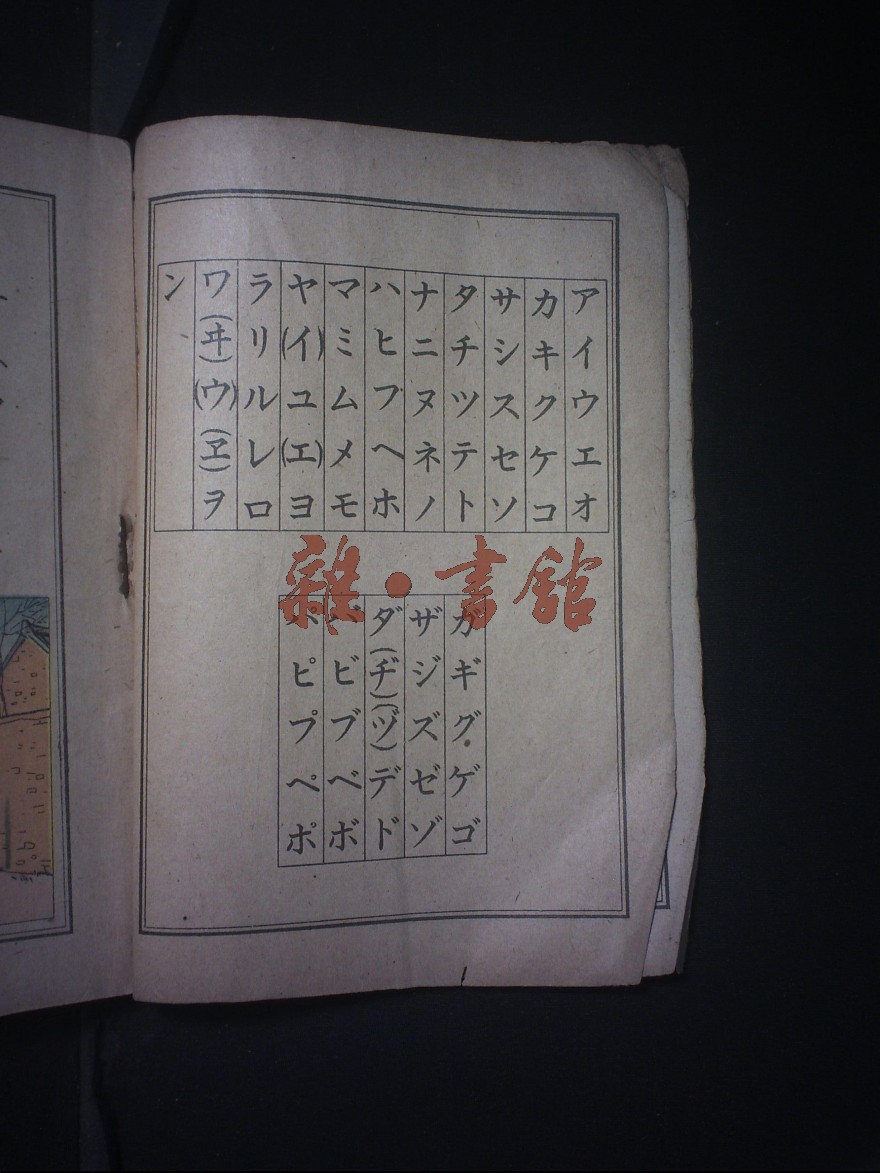 アイウエオ
カキクケコ
サシスセソ
タチツテト
ナニヌネノ
ハヒフヘホ
マミムメモ
ヤ(イ)ユ(エ)ヨ
ラリルレロ
ワ(ヰ)(ウ)(ヱ)ヲ
ン
ガギグゲゴ
ザジズゼゾ
ダ(ヂ)(ヅ)デド
バビブベボ
パピプペポ
雜•書館